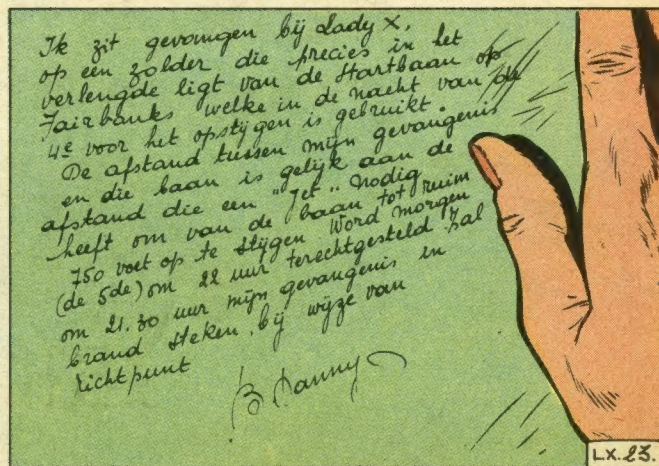 Ik zit gevangen bij Lady X,
op een zolder die precies in het
verlengde ligt van de startbaan op
Fairbanks welke in de nacht van de
4e voor het opstijgen is gebruikt.
De afstand tussen mijn gevangenis
en die baan is gelijk aan de
afstand die een "Jet" nodig
heeft om van de baan tot ruim
750 voet op te stijgen Word morgen
(de 5de) om 22 uur terechtgesteld Zal
om 21.30 uur mijn gevangenis in
brand steken, bij wijze van
richtpunt
B Danny
LX.23.